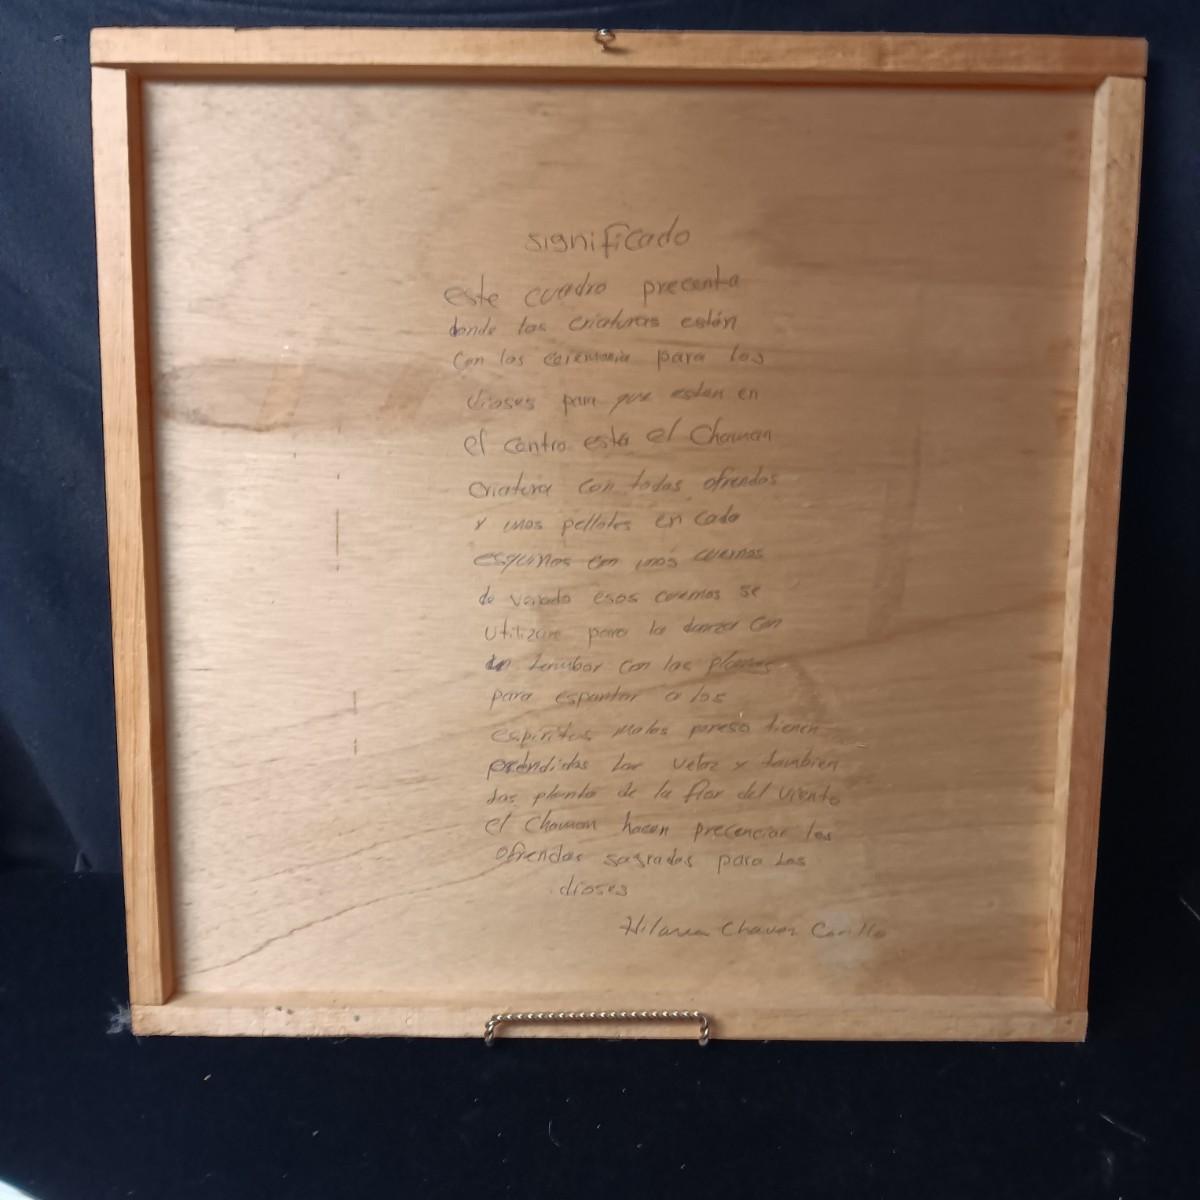 significado
este cuadro precenta
donde las criaturas están
con las ceremonia para los
dioses para que esten en
el centro está el Chaman
criatura con todas ofrendas
y unos pellotes en cada
esquinas con unos cuernos
de venado esos cuernos se
utilizan para la danza con
tambor con las plumas
para espantar a los
espiritus malos poreso tienen
prendidas las velas y tambien
las planta de la flor del viento
el Chaman hacen precenciar las
ofrendas sagradas para los
dioses
Chavez Carrillo